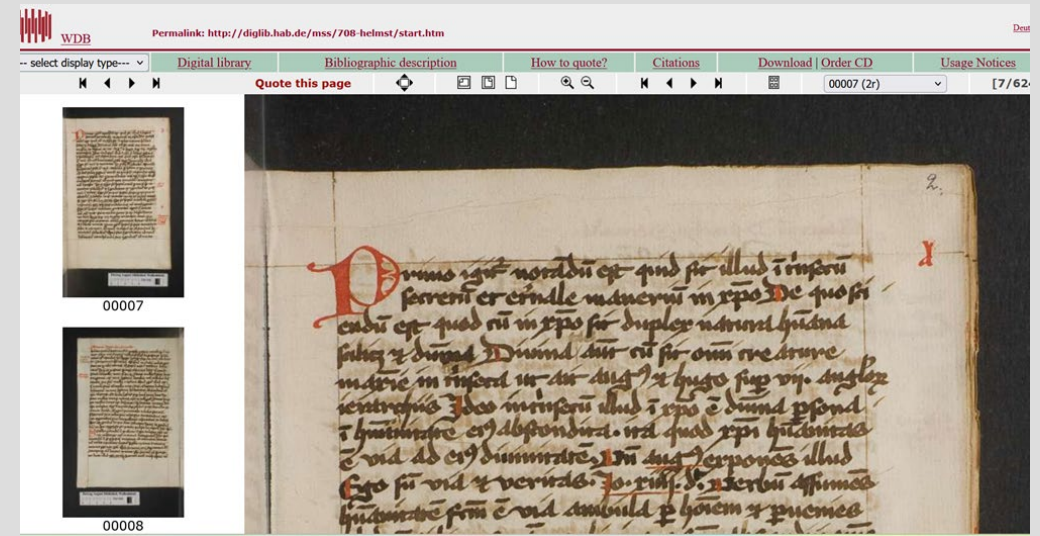 WDB
Permalink: http://diglib.hab.de/mss/708-helmst/start.htm
Deut
-- select display type---
Digital library
Bibliographic description
How to quote?
Citations
Download | Order CD
Usage Notices
Quote this page
00007 (2r)
[7/624
00007
00008
2.
Primo igit notadū est quid sit illud
secretū et et'nale in xp̄o De quo sci
endū est quod cū in xp̄o sit duplex natura hūana
scilicz et diuina Diuina aūt cū sit creature
ut ait aug9 et hugo sup vij. angl
Ideo illud ī xp̄o ē diuina p̱sona
ī hūanitate ei9 abscondita. ita quod xp̄i hūanitas
ē via ad ei9 diuinitatē. Vn̄ aug9 expones illud
Ego sū via et veritas. Jo. xiiij. d. Verbū assumēs
ē via ambula p̱ hoīem et puenies